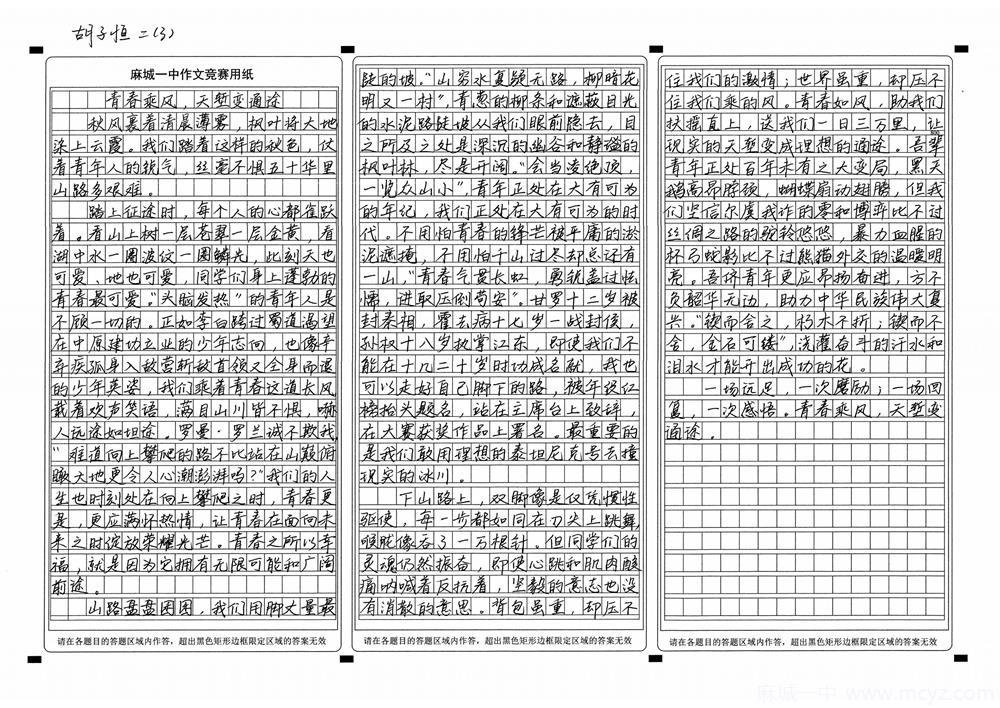 胡子恒 二(3)
麻城一中作文竞赛用纸
青春乘风，天堑变通途
秋风裹着清晨薄雾，枫叶将大地
染上云霞。我们踏着这样的秋色，仗
着青年人的锐气，丝毫不惧五十华里
山路多艰难。
踏上征途时，每个人的心都雀跃
着。看山上树一层苍翠一层金黄，看
湖中水一圈波纹一圈鳞光，此刻天也
可爱、地也可爱，同学们身上蓬勃的
青春最可爱。“头脑发热”的青年人是
不顾一切的。正如李白跨过蜀道渴望
在中原建功立业的少年志向，也像辛
弃疾孤身入敌营斩敌首领又全身而退
的少年英姿，我们乘着青春这道长风
载着欢声笑语，满目山川皆不惧，嚇
人远途如坦途。罗曼·罗兰诚不欺我，
“难道向上攀爬的路不比站在山巅俯
瞰大地更令人心潮澎湃吗？”我们的人
生也时刻处在向上攀爬之时，青春更
是，更应满怀热情，让青春在面向未
来之时绽放荣耀光芒。青春之所以幸
福，就是因为它拥有无限可能和广阔
前途。
山路盘盘囷囷，我们用脚丈量最
请在各题目的答题区域内作答，超出黑色矩形边框限定区域的答案无效
陡的坡。“山穷水复疑无路，柳暗花
明又一村”，青葱的柳条和遮蔽目光
的水泥路陡坡从我们眼前隐去，目
之所及之处是深沉的幽谷和静谧的
枫叶林，尽是开阔。“会当凌绝顶，
一览众山小”，青年正处在大有可为
的年纪，我们正处在大有可为的时
代。不用怕青春的锋芒被平庸的淤
泥遮掩，不用怕千山过尽却总还有
一山，“青春气贯长虹，勇锐盖过怯
懦，进取压倒苟安”。甘罗十二岁被
封秦相，霍去病十七岁一战封侯，
孙权十八岁执掌江东，即使我们不
能在十几二十岁时功成名就，我也
可以走好自己脚下的路，被年级红
榜抬头题名，站在主席台上致辞，
在大赛获奖作品上署名。最重要的
是我们敢用理想的泰坦尼克号去撞
现实的冰川。
下山路上，双脚像是仅凭惯性
驱使，每一步都如同在刀尖上跳舞，
喉咙像吞了一万根针。但同学们的
灵魂仍然振奋，即使心跳和肌肉酸
痛呐喊着反抗着，坚毅的意志也没
有消散的意思。背包虽重，却压不
请在各题目的答题区域内作答，超出黑色矩形边框限定区域的答案无效
住我们的激情；世界虽重，却压不
住我们乘的风。青春如风，助我们
扶摇直上，送我们一日三万里，让
现实的天堑变成理想的通途。吾辈
青年正处百年未有之大变局，黑天
鹅高昂脖颈，蝴蝶扇动翅膀，但我
们坚信尔虞我诈的零和博弈比不过
丝绸之路的驼铃悠悠，暴力血腥的
杯弓蛇影比不过熊猫外交的温暖明
亮。吾侪青年更应昂扬奋进，方不
负韶华无边，助力中华民族伟大复
兴。“锲而舍之，朽木不折；锲而不
舍，金石可镂”，浇灌奋斗的汗水和
泪水才能开出成功的花。
一场远足，一次磨励；一场回
复，一次感悟。青春乘风，天堑变
通途。
请在各题目的答题区域内作答，超出黑色矩形边框限定区域的答案无效
麻城一中 www.mcyz.com